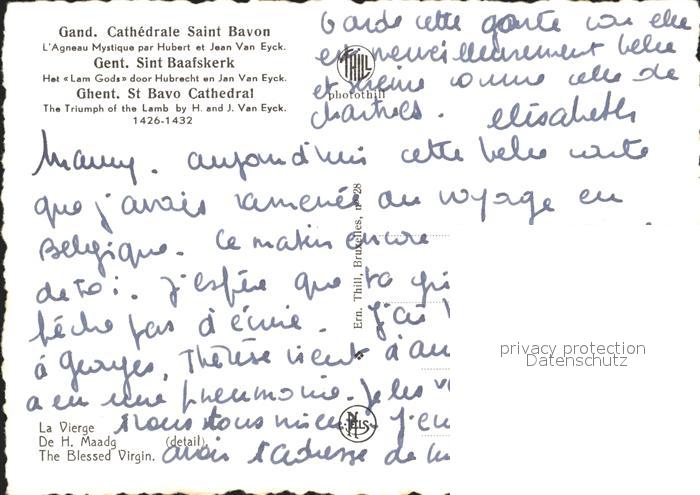 Gand. Cathédrale Saint Bavon
L'Agneau Mystique par Hubert et Jean Van Eyck.
Gent. Sint Baafskerk
Het «Lam Gods» door Hubrecht en Jan Van Eyck.
Ghent. St Bavo Cathedral
The Triumph of the Lamb by H. and J. Van Eyck.
1426-1432
THILL
photothill
Garde cette carte car elle
est merveilleusement belle
et sereine comme celle de
chartres. elisabeth
Mamy. aujourd'hui cette belle carte
que j'avais ramenée du voyage en
Belgique. Ce matin encore
de toi. J'espère que ta
pêche pas d'écrire. J'ai
à Georges, Thérèse vient d'
a eu une pneumonie. Je les
Nous tous J'
avais l'adresse de
Ern. Thill, Bruxelles, n° 28
NELS
La Vierge
De H. Maagd (detail).
The Blessed Virgin.
privacy protection
Datenschutz